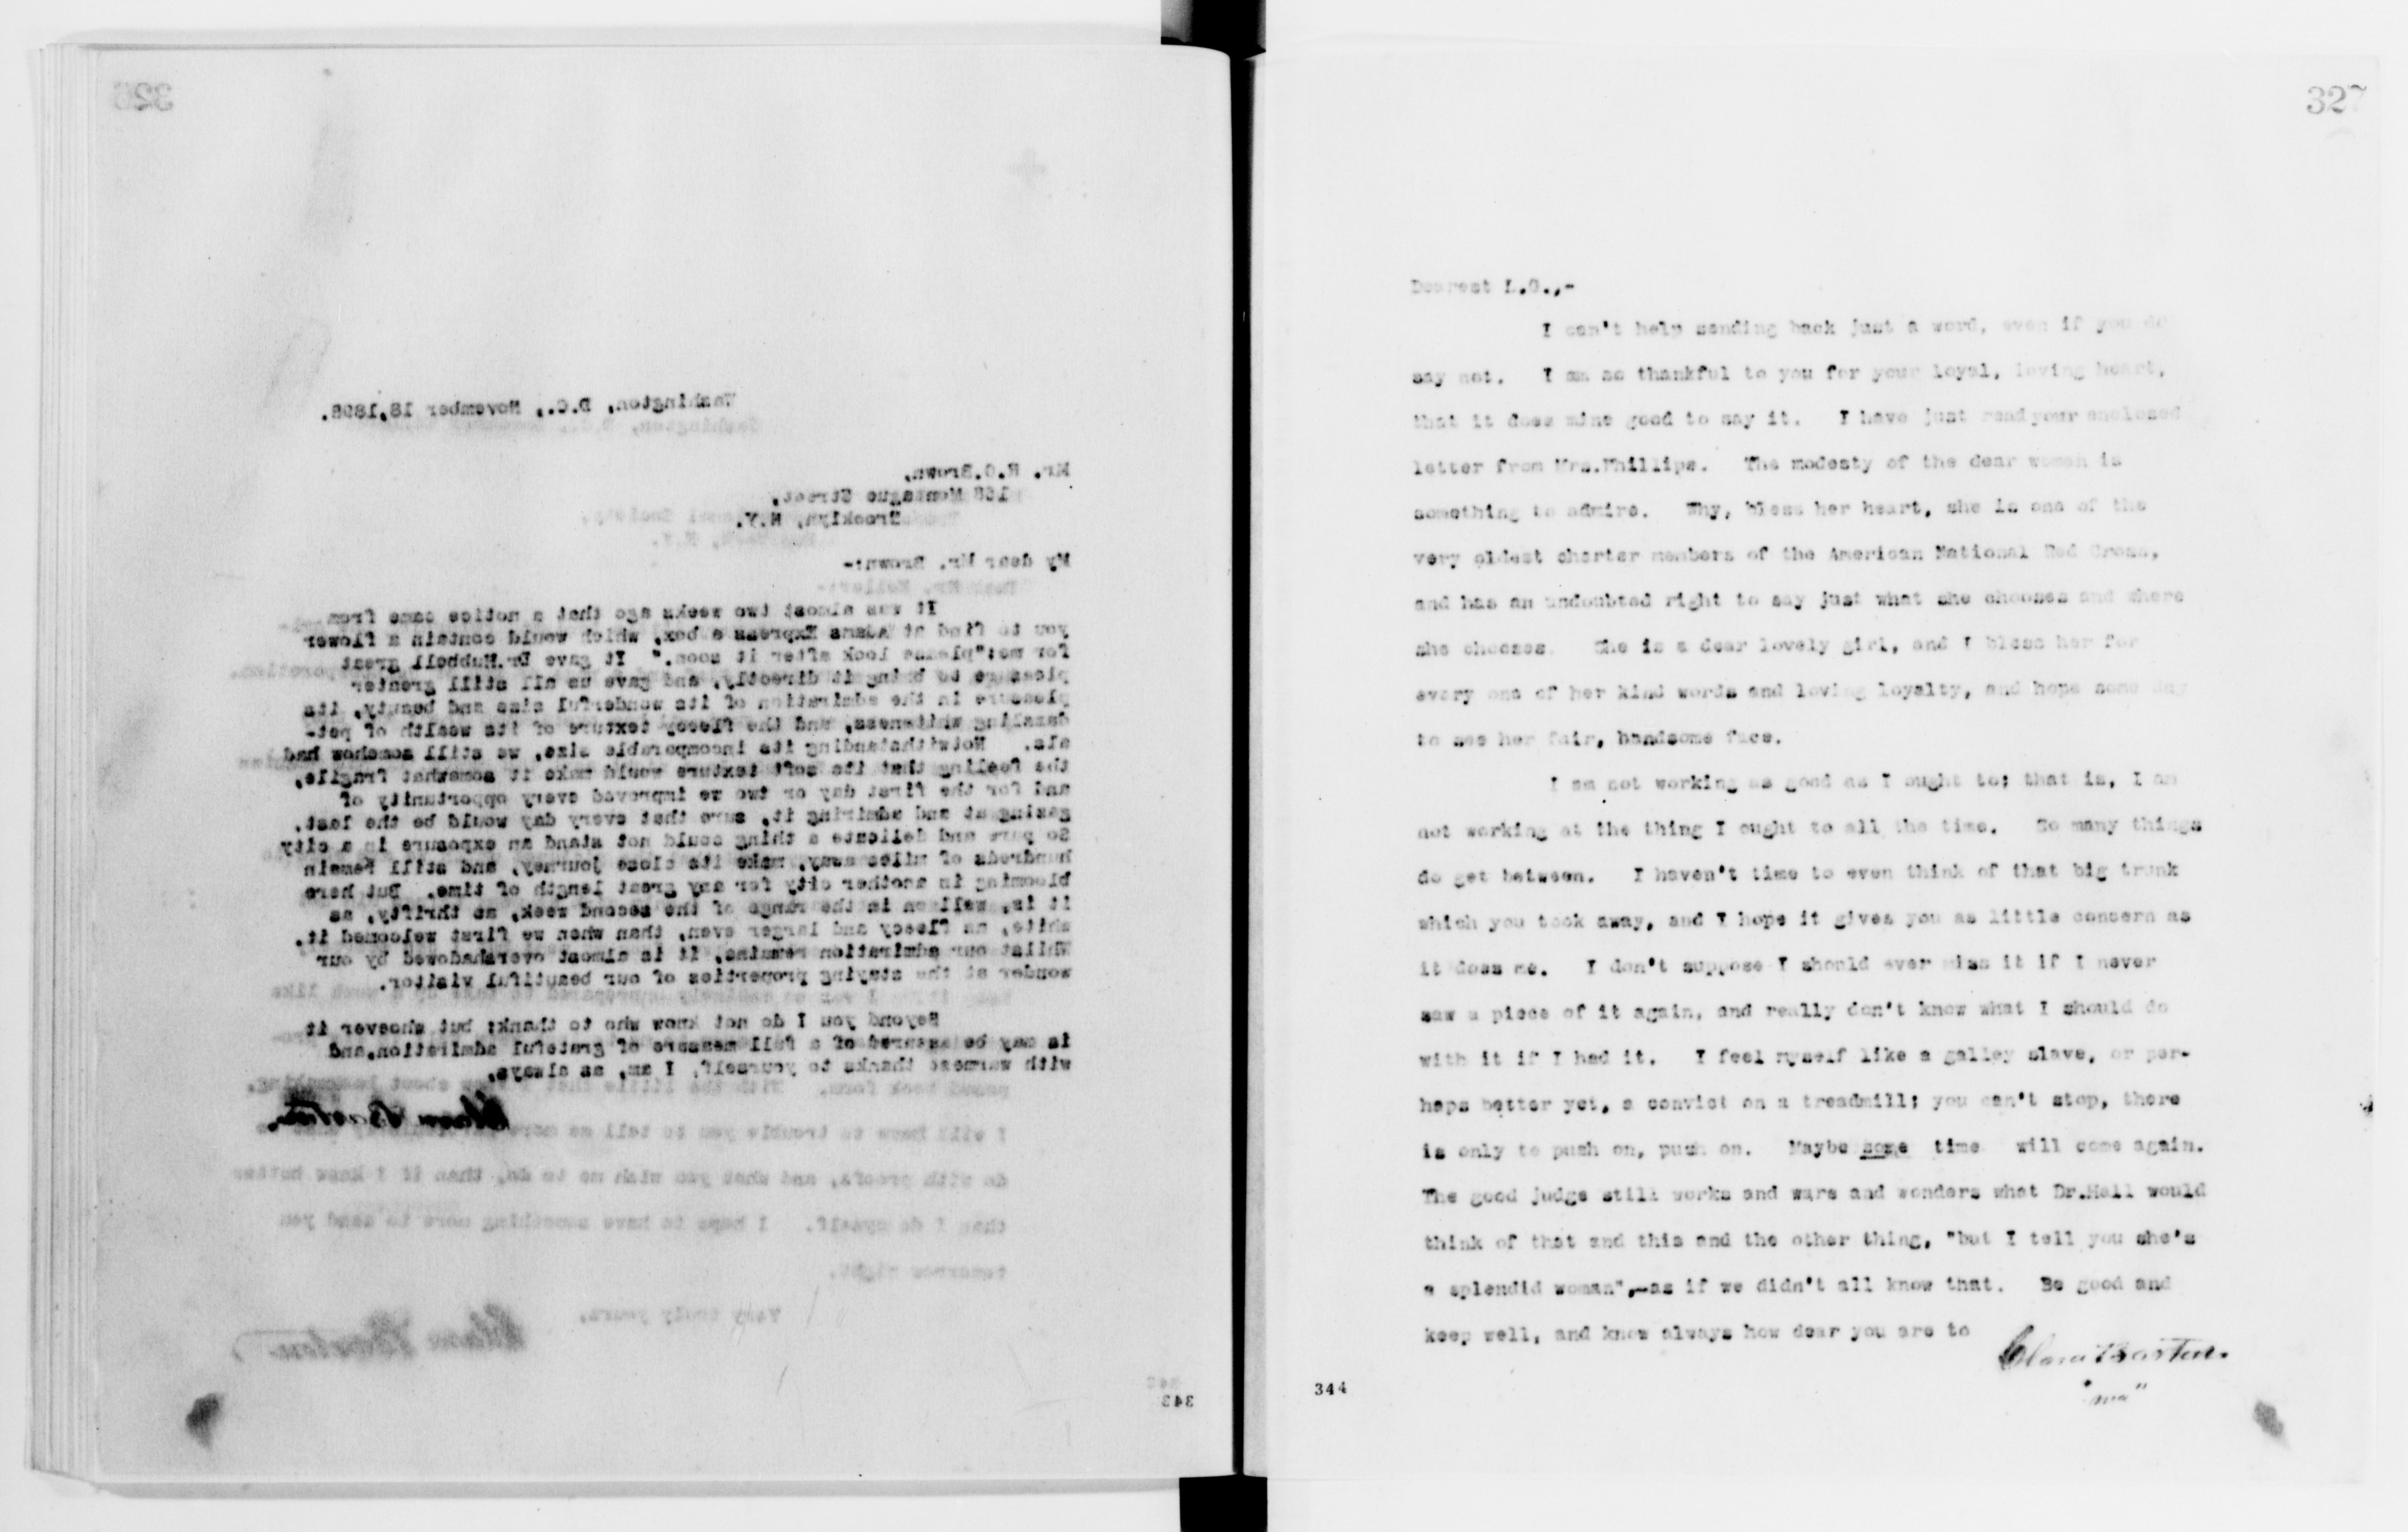 326
Washington, D.C., November 18,1898.
Mr. H.O.Brown,
168 Montague Street,
Brooklyn, N.Y.
My dear Mr. Brown:-
It was almost two weeks ago that a notice came from
you to find at Adams Express a box, which would contain a flower
for me:"please look after it soon." It gave Dr.Hubbell great
pleasure to bring it directly, and gave us all still greater
pleasure in the admiration of its wonderful size and beauty, its
dazzling whiteness, and the fleecy texture of its wealth of pet-
als. Notwithstanding its incomparable size, we still somehow had
the feeling that its soft texture would make it somewhat fragile,
and for the first day or two we improved every opportunity of
gazingat and admiring it, sure that every day would be the last.
So pure and delicate a thing could not stand an exposure in a city
hundreds of miles away, make its close journey, and still remain
blooming in another city for any great length of time. But here
it is, wellson in the range of the second week, as thrifty, as
white, as fleecy and larger even, than when we first welcomed it.
Whilst our admiration remains, it is almost overshadowed by our
wonder at the staying properties of our beautiful visitor.
Beyond you I do not know who to thank; but whoever it
is may be assured of a full measure of grateful admiration,and
with warmest thanks to yourself, I am, as always,
Clara Barton.
I will have to trouble you to tell me more
do with proofs, and what you wish me to do, than if I knew better
than I do myself. I hope to have something more to send you
tomorrow night.
Very truly yours,
Clara Barton
343
327
Dearest L.G.,-
I can't help sending back just a word, even if you do
say not. I am so thankful to you for your loyal, loving heart,
that it does mine good to say it. I have just readyour enclosed
letter from Mrs.Phillips. The modesty of the dear woman is
something to admire. Why, bless her heart, she is one of the
very oldest charter members of the American National Red Cross,
and has an undoubted right to say just what she chooses and where
she chooses. She is a dear lovely girl, and I bless her for
every one of her kind words and loving loyalty, and hope some day
to see her fair, handsome face.
I am not working as good as I ought to; that is, I am
not working at the thing I ought to all the time. So many things
do get between. I haven't time to even think of that big trunk
which you took away, and I hope it gives you as little concern as
it does me. I don't suppose I should ever miss it if I never
saw a piece of it again, and really don't know what I should do
with it if I had it. I feel myself like a galley slave, or per-
haps better yet, a convict on a treadmill; you can't stop, there
is only to push on, push on. Maybe some time will come again.
The good judge still works and wars and wonders what Dr.Hall would
think of that and this and the other thing, "but I tell you she's
a splendid woman",-as if we didn't all know that. Be good and
keep well, and know always how dear you are to
Clara Barton.
"ma"
344